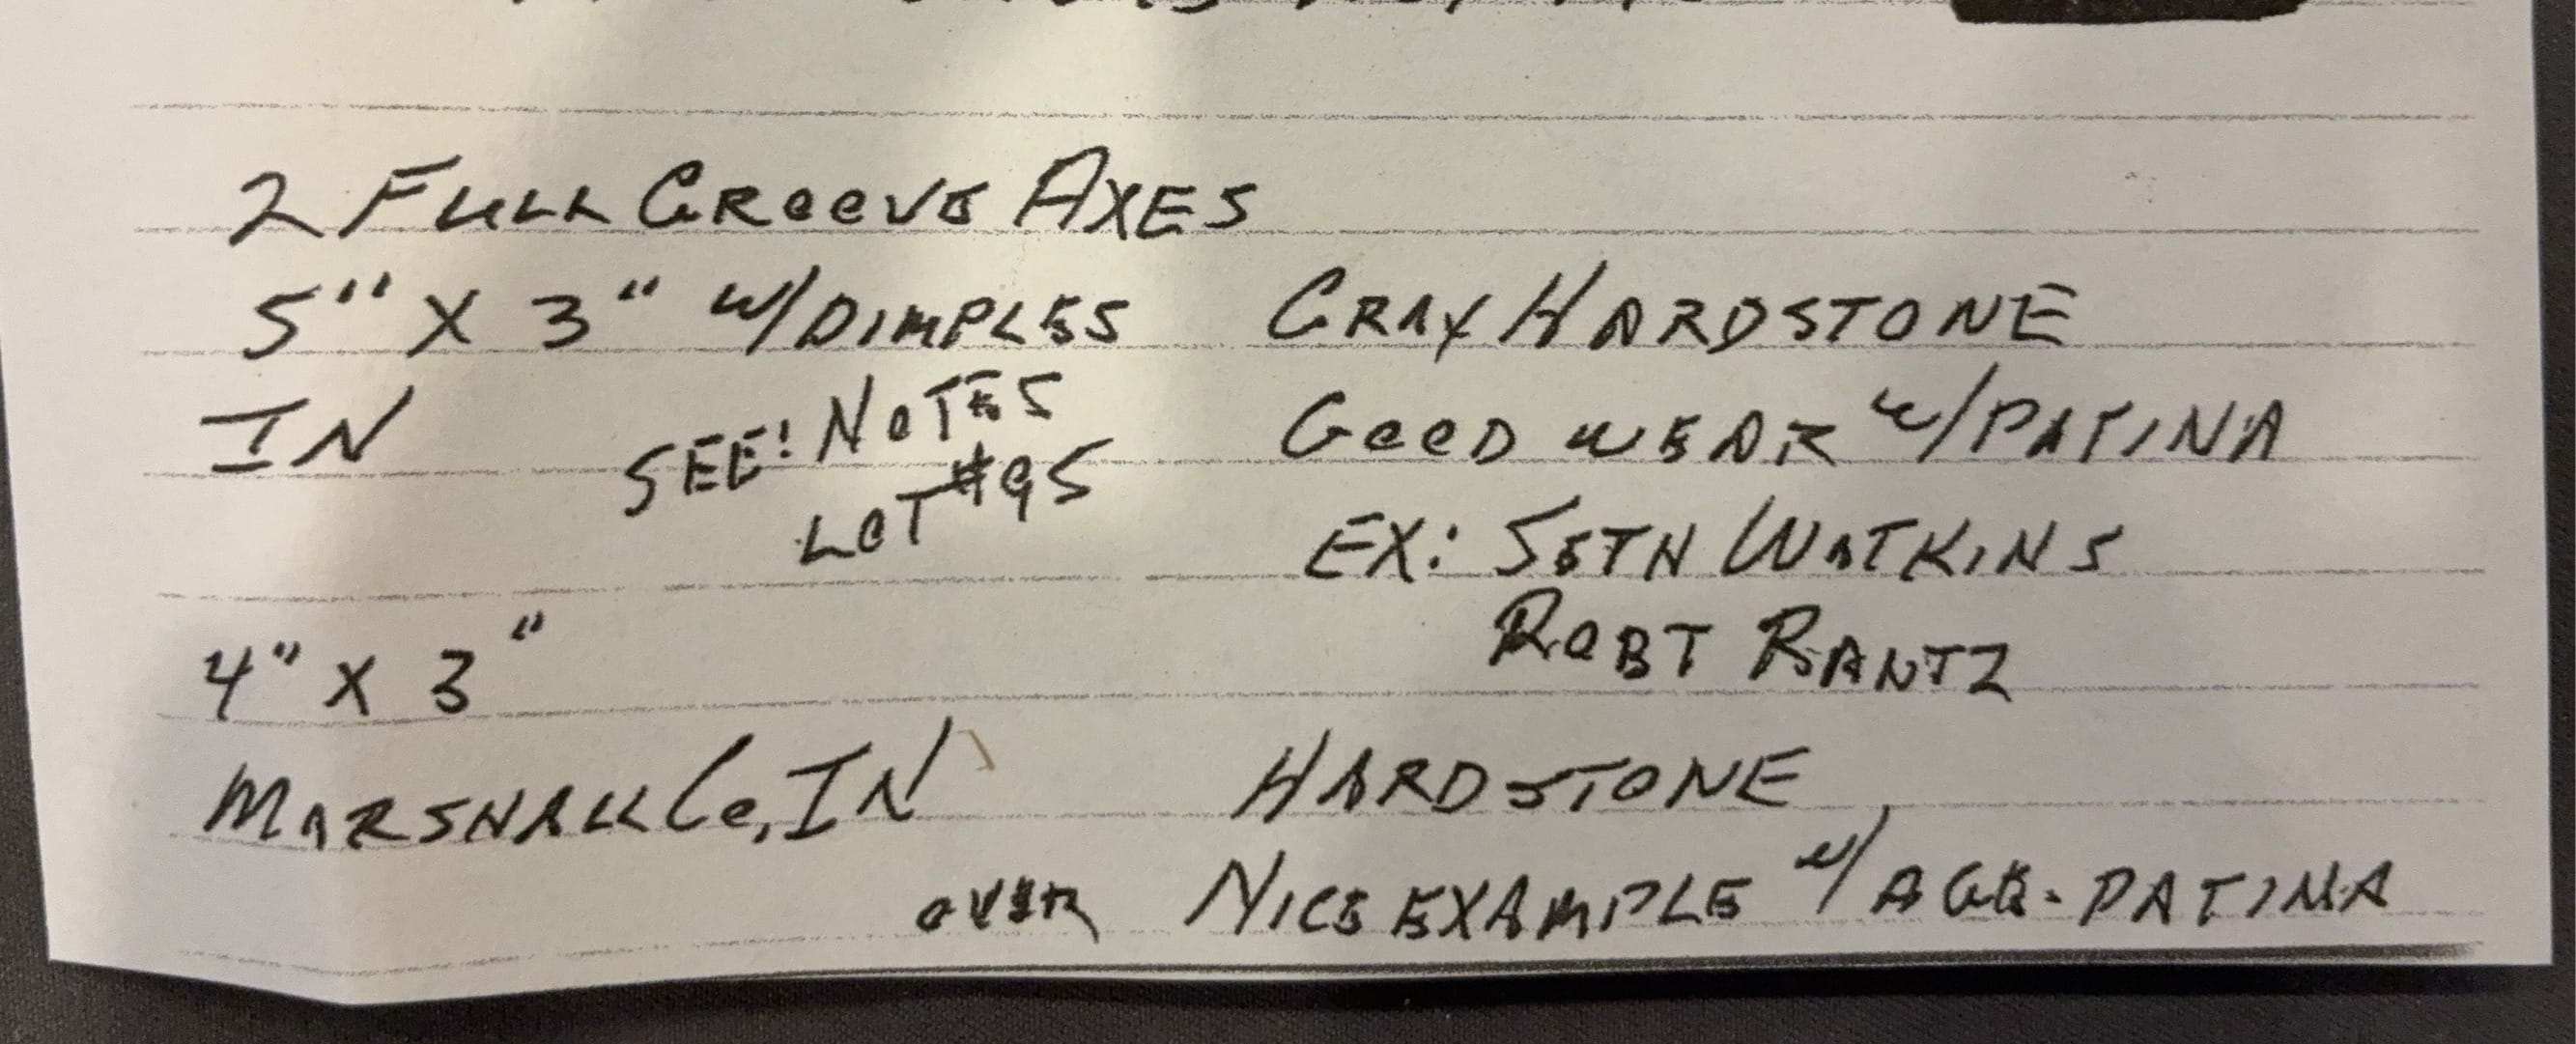 2 FULL GROOVE AXES
5" X 3" w/DIMPLES GRAY HARDSTONE
IN SEE! NOTES GOOD WEAR w/PATINA
LOT #95
EX: SETH WATKINS
ROBT RANTZ
4" X 3"
MARSHALL Co, IN HARDSTONE
OVER NICE EXAMPLE w/AGE-PATINA